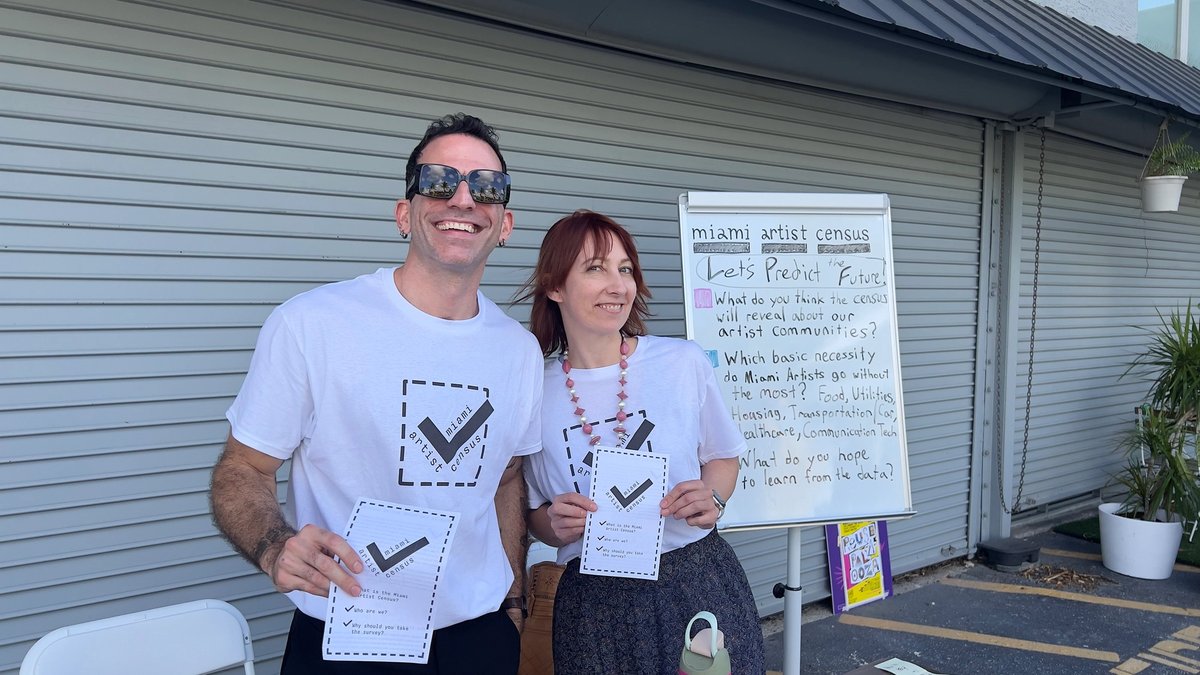 miami artist census
Let's Predict the Future!
What do you think the census
will reveal about our
artist communities?
Which basic necessity
do Miami Artists go without
the most? Food, Utilities,
Housing, Transportation/Car,
Healthcare, Communication Tech
What do you hope
to learn from the data?
miami
artist census
miami
artist census
miami
artist census
What is the Miami
Artist Census?
Who are we?
Why should you take
the survey?
miami
artist census
What is the Miami
Artist Census?
Who are we?
Why should you take
the survey?